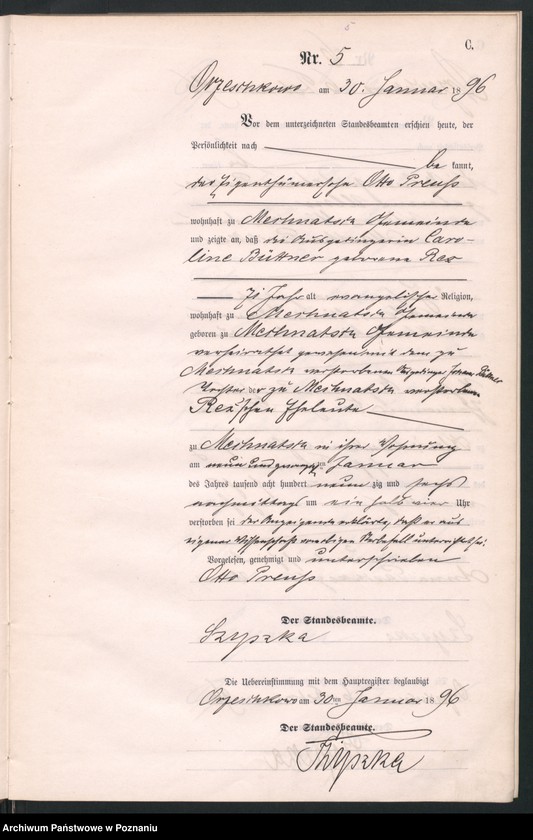 5
C.
Nr. 5
Orzeschkowo am 30. Januar 1896
Vor dem unterzeichneten Standesbeamten erschien heute, der
Persönlichkeit nach be kannt,
der Eigenthümersohn Otto Preuß
wohnhaft zu Merinatsta Gemeinde
und zeigte an, daß die Ausgedingerin Caro-
line Büttner geborene Rex
71 Jahr alt evangelischer Religion,
wohnhaft zu Gemeinde
geboren zu Gemeinde
verheirathet gewesen mit dem zu
verstorbenen
Tochter der zu verstorbenen
Rex'schen Eheleute
zu in ihrer Wohnung
am neun und zwanzigsten Januar
des Jahres tausend acht hundert neun zig und sechs
nachmittags um ein halb vier Uhr
verstorben sei der Anzeigende erklärte, daß er aus
eigener Wissenschaft von obigem Sterbefall unterrichtet sei.
Vorgelesen, genehmigt und unterschrieben
Otto Preuß
Der Standesbeamte.
Szyszka
Die Uebereinstimmung mit dem Hauptregister beglaubigt
Orzeschkowo am 30ten Januar 1896
Der Standesbeamte.
Szyszka
Archiwum Państwowe w Poznaniu